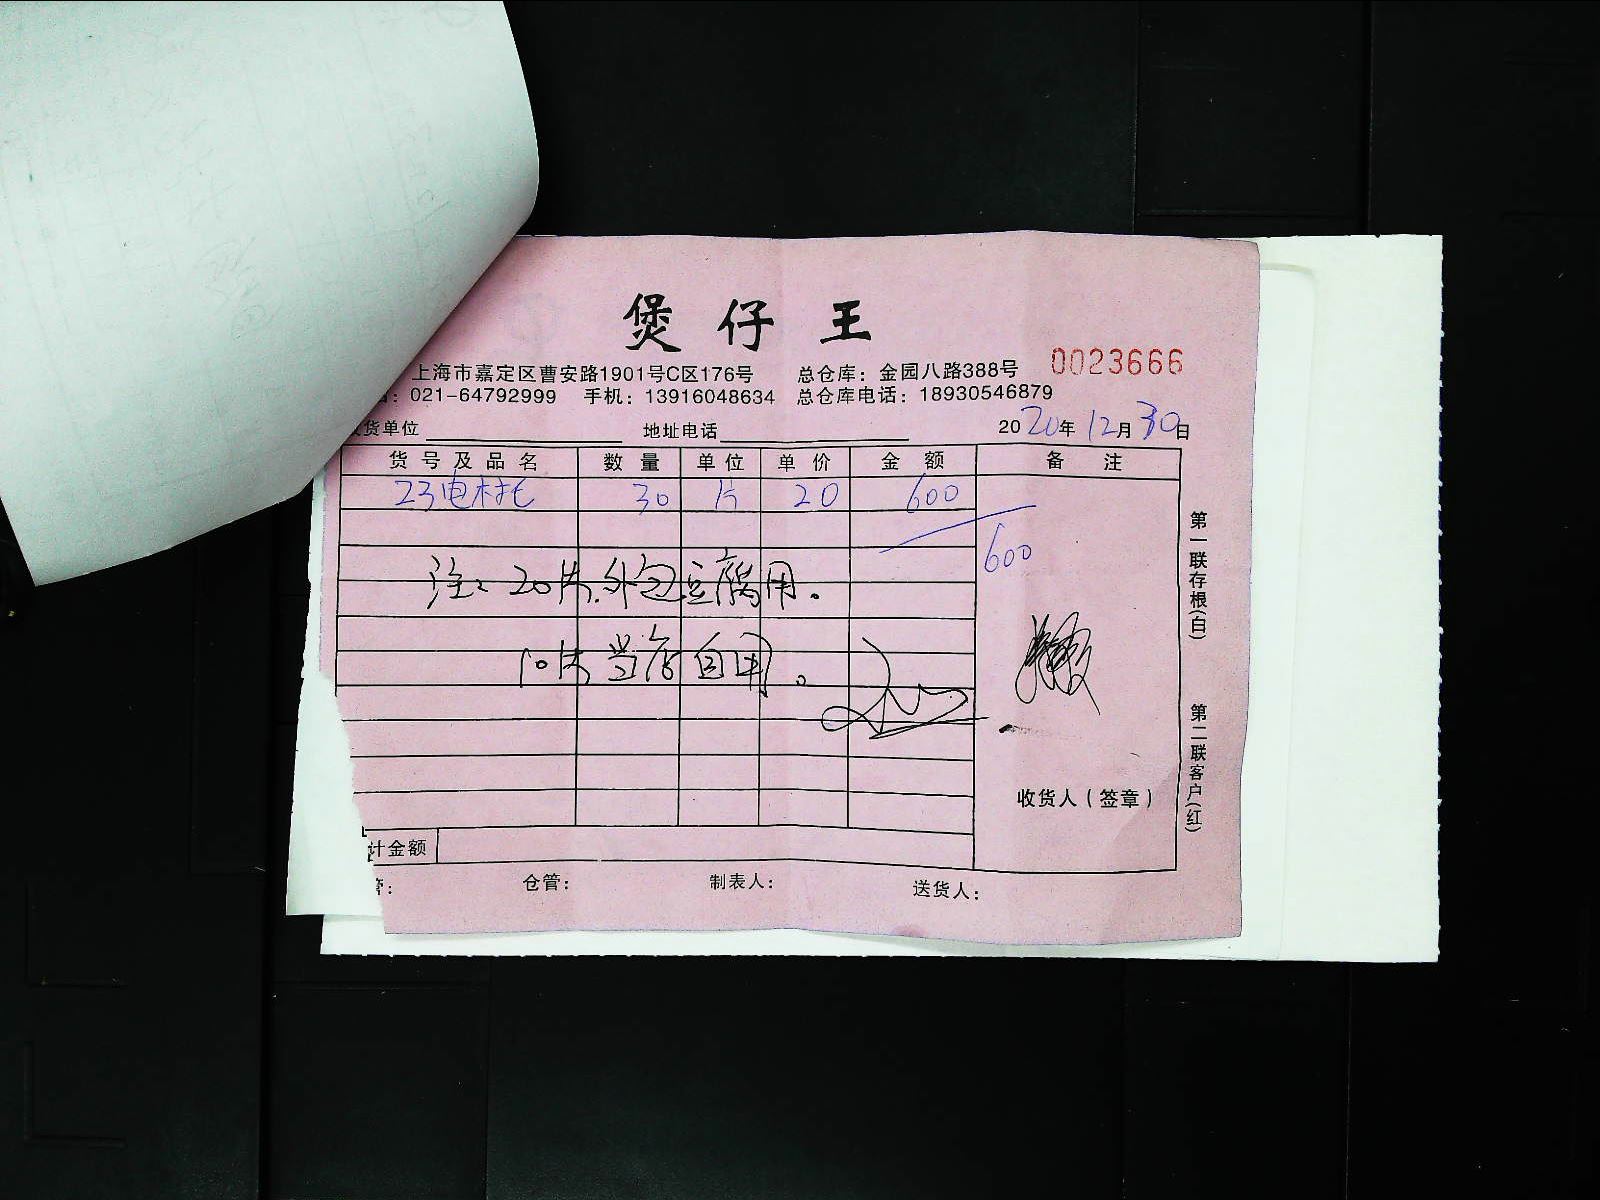 煲仔王
上海市嘉定区曹安路1901号C区176号 总仓库：金园八路388号 0023666
：021-64792999 手机：13916048634 总仓库电话：18930546879
货单位 地址电话 2020年12月30日
货号及品名 数量 单位 单价 金额 备注
23电木托 30 片 20 600
600
注：20片外包豆腐用。
10片当店自用。
第一联存根(白)
第二联客户(红)
收货人（签章）
计金额
管： 仓管： 制表人： 送货人：